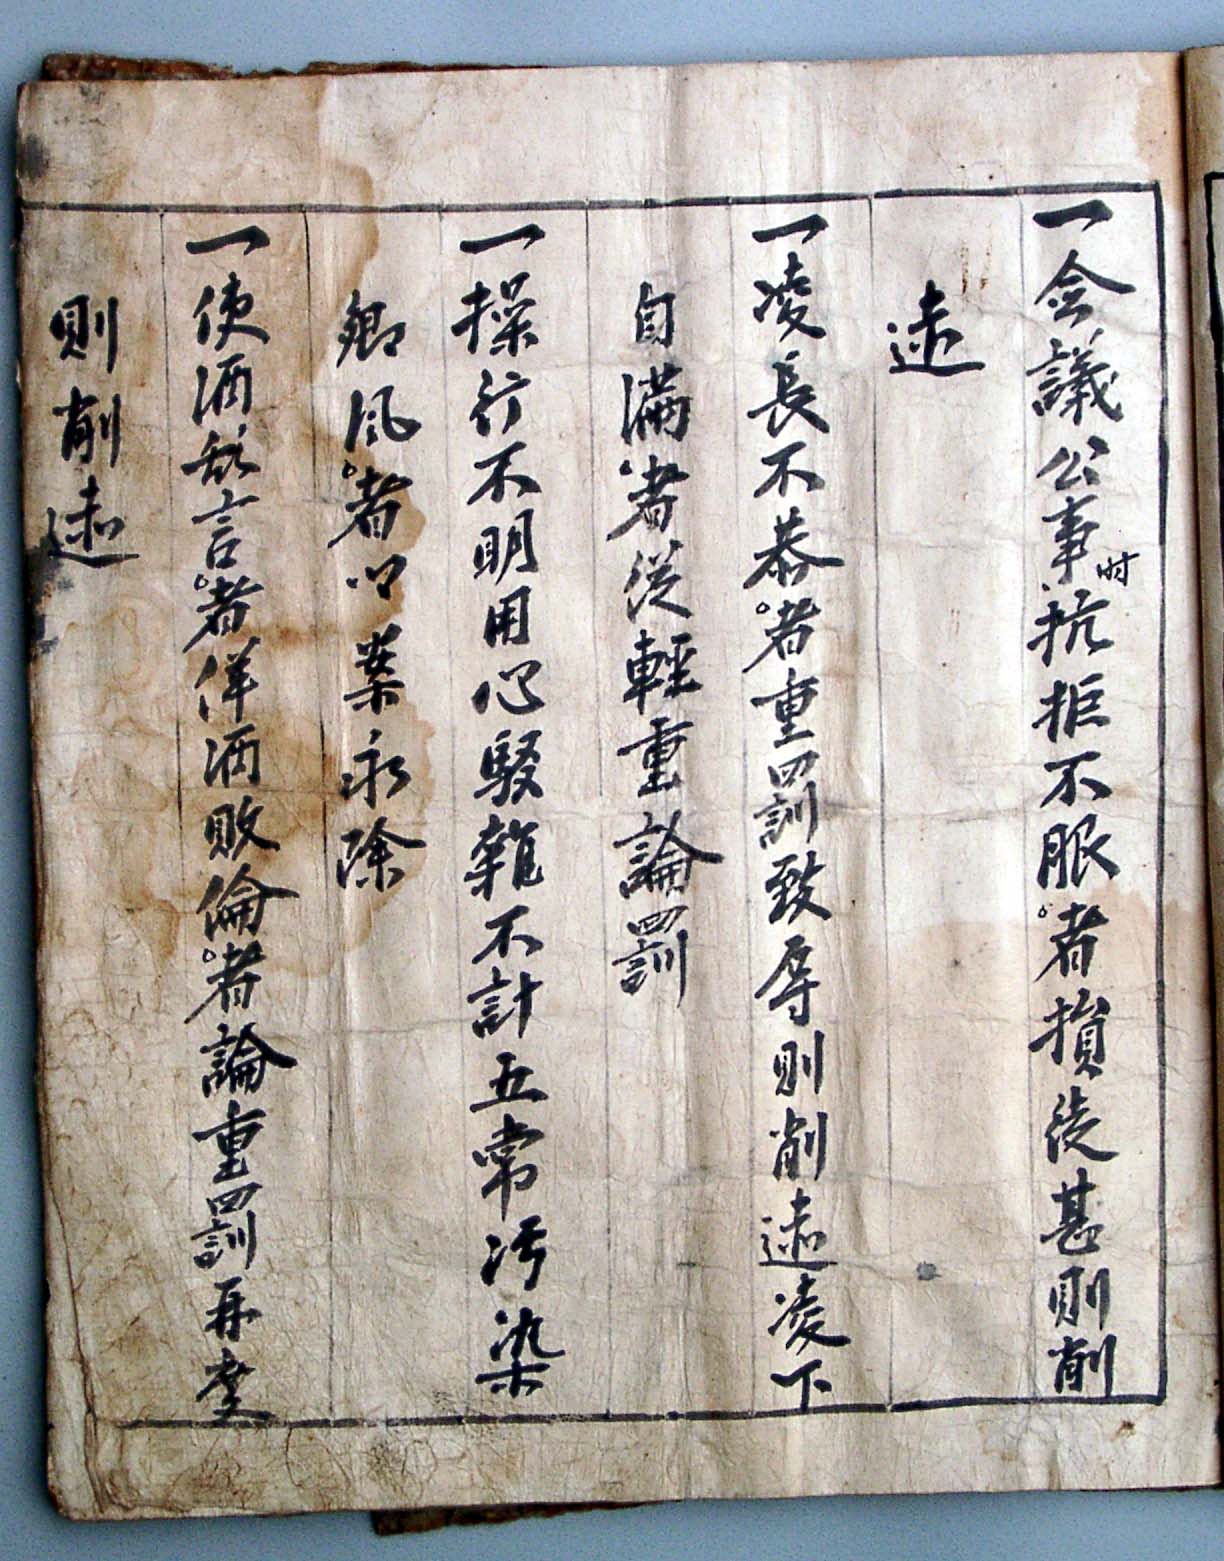 一会議公事时抗拒不服者損徒甚則削
逺
一凌長不恭者重罰致辱則削逺凌下
自滿者從輕重論罰
一操行不明用心駁雜不計五常汚染
鄉風者以案永除
一使酒乱言者佯酒敗倫者論重罰再度
則削逺